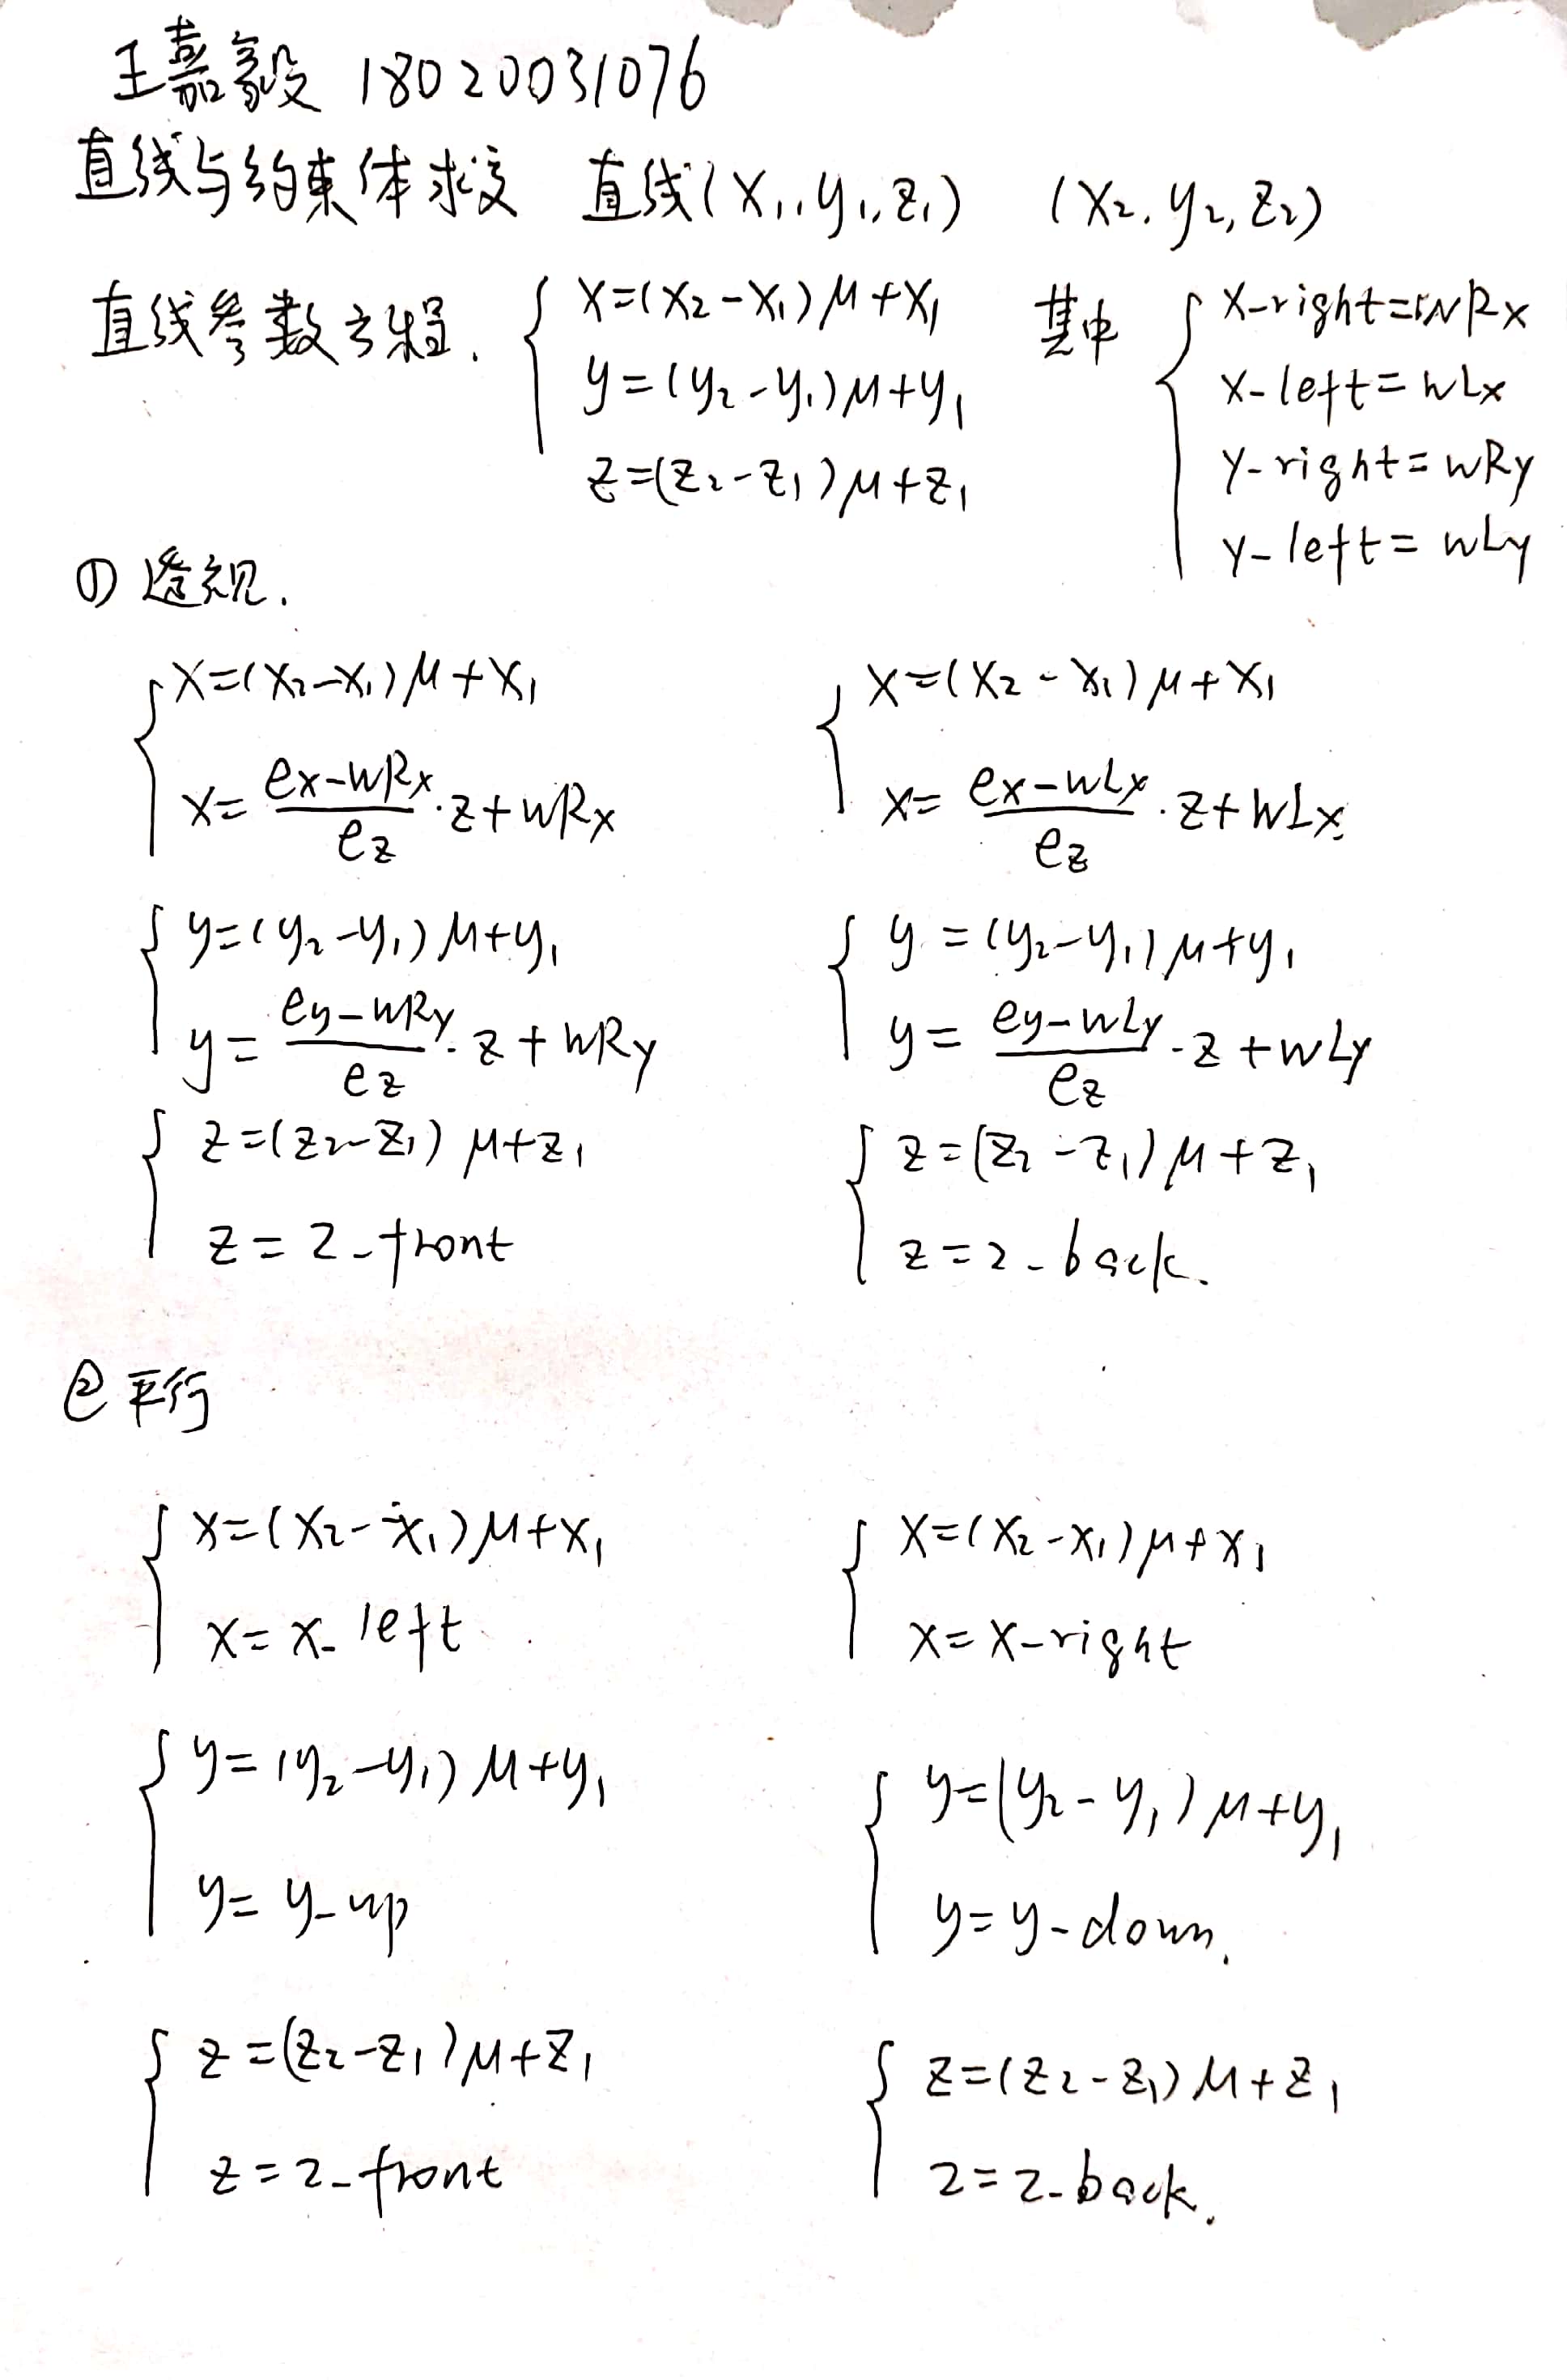 王嘉毅 18020031076
直线与约束体求交 直线(x₁,y₁,z₁) (x₂,y₂,z₂)
直线参数方程. { x=(x₂-x₁)μ+x₁
y=(y₂-y₁)μ+y₁
z=(z₂-z₁)μ+z₁
其中 { x-right=wRx
x-left=wLx
y-right=wRy
y-left=wLy
① 透视.
{ x=(x₂-x₁)μ+x₁
x=(ex-wRx)/ez·z+wRx
{ x=(x₂-x₁)μ+x₁
x=(ex-wLx)/ez·z+wLx
{ y=(y₂-y₁)μ+y₁
y=(ey-wRy)/ez·z+wRy
{ y=(y₂-y₁)μ+y₁
y=(ey-wLy)/ez·z+wLy
{ z=(z₂-z₁)μ+z₁
z=z-front
{ z=(z₂-z₁)μ+z₁
z=z-back.
② 平行
{ x=(x₂-x₁)μ+x₁
x=x-left
{ x=(x₂-x₁)μ+x₁
x=x-right
{ y=(y₂-y₁)μ+y₁
y=y-up
{ y=(y₂-y₁)μ+y₁
y=y-down.
{ z=(z₂-z₁)μ+z₁
z=z-front
{ z=(z₂-z₁)μ+z₁
z=z-back.